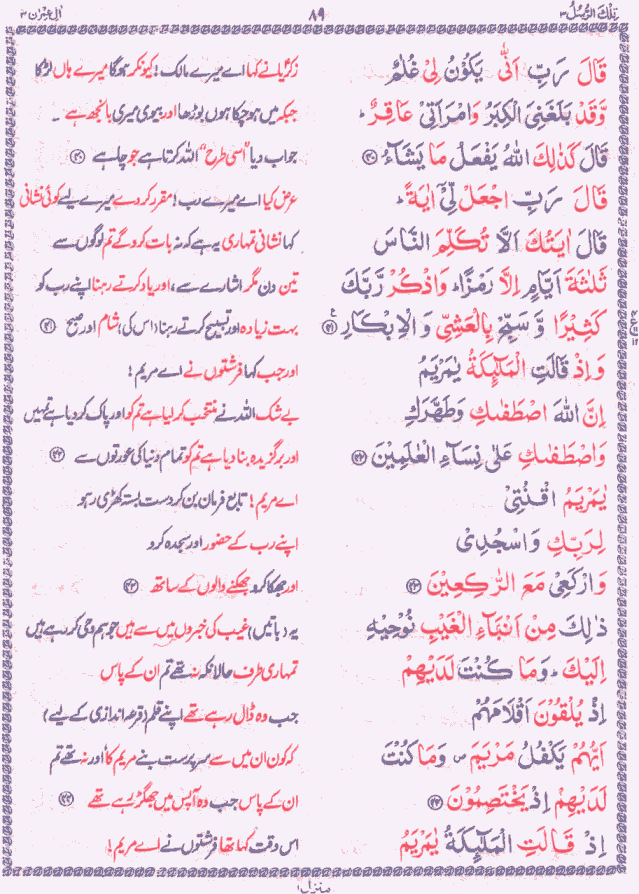 تِلْكَ الرُّسُلُ ٣
٨٩
اٰلِ عِمْرٰن ٣
قَالَ رَبِّ اَنّٰى يَكُوْنُ لِىْ غُلٰمٌ
زکریّا نے کہا اے میرے مالک! کیونکر ہوگا میرے ہاں لڑکا
وَّقَدْ بَلَغَنِىَ الْكِبَرُ وَامْرَاَتِىْ عَاقِرٌ ؕ
جبکہ میں ہوچکا ہوں بوڑھا اور بیوی میری بانجھ ہے ۔
قَالَ كَذٰلِكَ اللّٰهُ يَفْعَلُ مَا يَشَآءُ ﴿۴۰﴾
جواب دیا "اسی طرح" اللہ کرتا ہے جو چاہے ﴿۴۰﴾
قَالَ رَبِّ اجْعَلْ لِّىْٓ اٰيَةً ؕ
عرض کیا اے میرے رب! مقرر کردے میرے لیے کوئی نشانی
قَالَ اٰيَتُكَ اَلَّا تُكَلِّمَ النَّاسَ
کہا نشانی تمہاری یہ ہے کہ نہ بات کروگے تم لوگوں سے
ثَلٰثَةَ اَيَّامٍ اِلَّا رَمْزًا ؕ وَاذْكُرْ رَّبَّكَ
تین دن مگر اشارے سے، اور یاد کرتے رہنا اپنے رب کو
كَثِيْرًا وَّسَبِّحْ بِالْعَشِىِّ وَالْاِبْكَارِ ﴿۴۱﴾
بہت زیادہ اور تسبیح کرتے رہنا (اس کی) شام اور صبح ﴿۴۱﴾
وَاِذْ قَالَتِ الْمَلٰٓئِكَةُ يٰمَرْيَمُ
اور جب کہا فرشتوں نے اے مریم!
اِنَّ اللّٰهَ اصْطَفٰىكِ وَطَهَّرَكِ
بے شک اللہ نے منتخب کرلیا ہے تم کو اور پاک کردیا ہے تمہیں
وَاصْطَفٰىكِ عَلٰى نِسَآءِ الْعٰلَمِيْنَ ﴿۴۲﴾
اور برگزیدہ بنا دیا ہے تم کو تمام دنیا کی عورتوں سے ﴿۴۲﴾
يٰمَرْيَمُ اقْنُتِىْ
اے مریم! تابع فرمان بن کر دست بستہ کھڑی رہو
لِرَبِّكِ وَاسْجُدِىْ
اپنے رب کے حضور اور سجدہ کرو
وَارْكَعِىْ مَعَ الرّٰكِعِيْنَ ﴿۴۳﴾
اور جھکا کرو جھکنے والوں کے ساتھ ﴿۴۳﴾
ذٰلِكَ مِنْ اَنْۢبَآءِ الْغَيْبِ نُوْحِيْهِ
یہ (باتیں) غیب کی خبروں میں سے ہیں جو ہم وحی کررہے ہیں
اِلَيْكَ ؕ وَمَا كُنْتَ لَدَيْهِمْ
تمہاری طرف حالانکہ نہ تھے تم ان کے پاس
اِذْ يُلْقُوْنَ اَقْلَامَهُمْ
جب وہ ڈال رہے تھے اپنے قلم (قرعہ اندازی کے لیے)
اَيُّهُمْ يَكْفُلُ مَرْيَمَ ۪ وَمَا كُنْتَ
کہ کون ان میں سے سرپرست بنے مریم کا اور نہ تھے تم
لَدَيْهِمْ اِذْ يَخْتَصِمُوْنَ ﴿۴۴﴾
ان کے پاس جب وہ آپس میں جھگڑ رہے تھے ﴿۴۴﴾
اِذْ قَالَتِ الْمَلٰٓئِكَةُ يٰمَرْيَمُ
اس وقت کہا تھا فرشتوں نے اے مریم!
منزل ۱